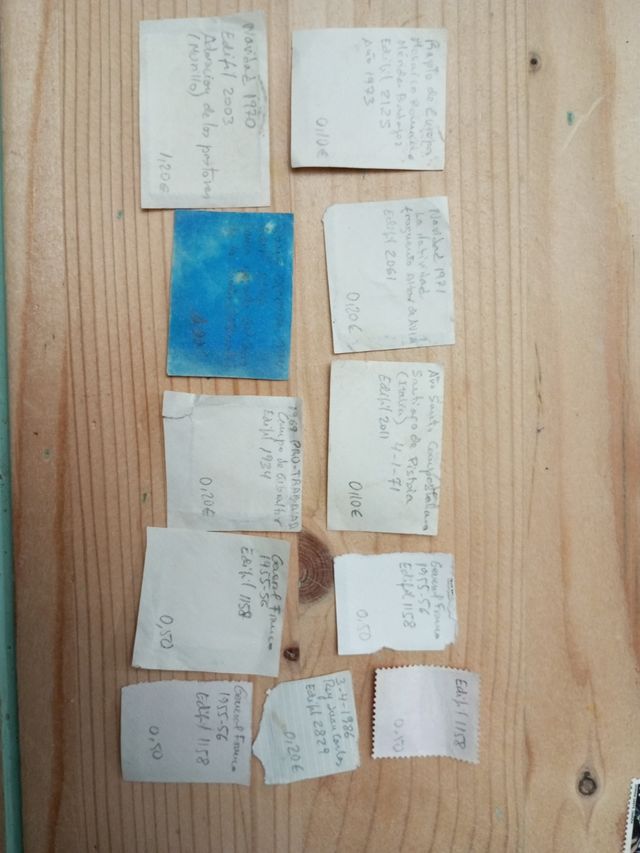 Navidad 1970
Edifil 2003
Adoracion de los pastores
(Murillo)
1,20€
Rapto de Europa
Mosaico Romano
Merida Badajoz
Edifil 2125
Año 1973
0,10€
Navidad 1971
La Natividad
fragmento Altar de AVIA
Edifil 2061
0,20€
1969 PRO-TRABAJAD
Campo de Gibraltar
Edifil 1934
0,20€
Año Santo Compostelano
Santiago de Pistoia
(Italia) 4-1-71
Edifil 2011
0,10€
General Franco
1955-56
Edifil 1158
0,50
General Franco
1955-56
Edifil 1158
0,50
General Franco
1955-56
Edifil 1158
0,50
3-4-1986
Rey Juan Carlos
Edifil 2829
0,20€
Edifil 1158
0,50